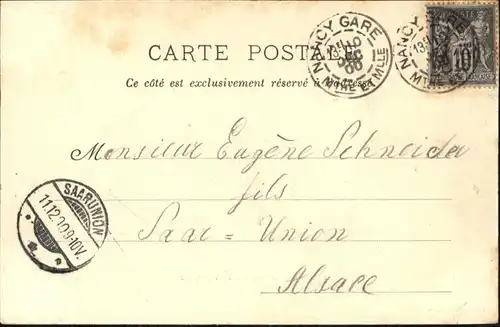 CARTE POSTALE
Ce côté est exclusivement réservé à l'adresse
NANCY GARE
MTHE ET MLLE
NANCY GARE
10
Monsieur Eugène Schneider
fils
Saar=Union
Alsace
SAARUNION
11.12.00.9-10V.